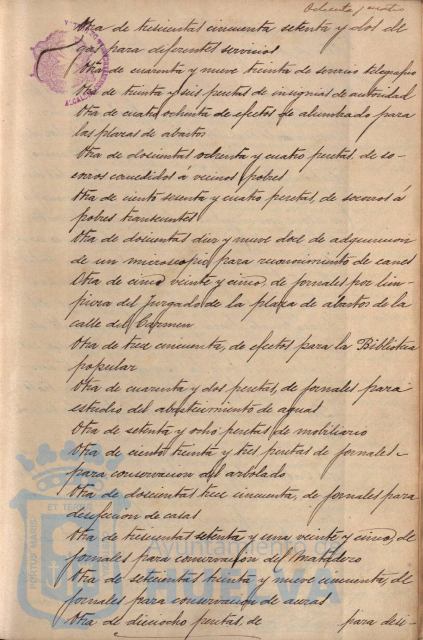 Ochenta y cuatro
Otra de trescientas cincuenta setenta y dos de
gas para diferentes servicios
Otra de cuarenta y nueve treinta de servicio telegrafico
Otra de treinta y seis pesetas de insignias de autoridad
Otra de cuatro ochenta de efectos de alumbrado para
las plazas de abastos
Otra de doscientas ochenta y cuatro pesetas, de so-
corros concedidos á vecinos pobres
Otra de ciento sesenta y cuatro pesetas, de socorros á
pobres transeuntes
Otra de doscientas diez y nueve doce de adquisicion
de un microscopio para reconocimiento de carnes
Otra de cinco veinte y cinco, de jornales por lim-
pieza del Juzgado de la plaza de abastos de la
calle del Carmen
Otra de trece cincuenta, de efectos para la Biblioteca
popular
Otra de cuarenta y dos pesetas, de jornales para
estudio del abastecimiento de aguas
Otra de setenta y ocho pesetas de mobiliario
Otra de ciento treinta y tres pesetas de jornales
para conservacion del arbolado
Otra de doscientas trece cincuenta, de jornales para
desinfeccion de casas
Otra de trescientas setenta y una veinte y cinco, de
jornales para conservacion del Matadero
Otra de setecientas treinta y nueve cincuenta, de
jornales para conservacion de aceras
Otra de dieciocho pesetas de para desi-
PORTUS MARIS ET TERRAE
Ayuntamiento de
HUELVA